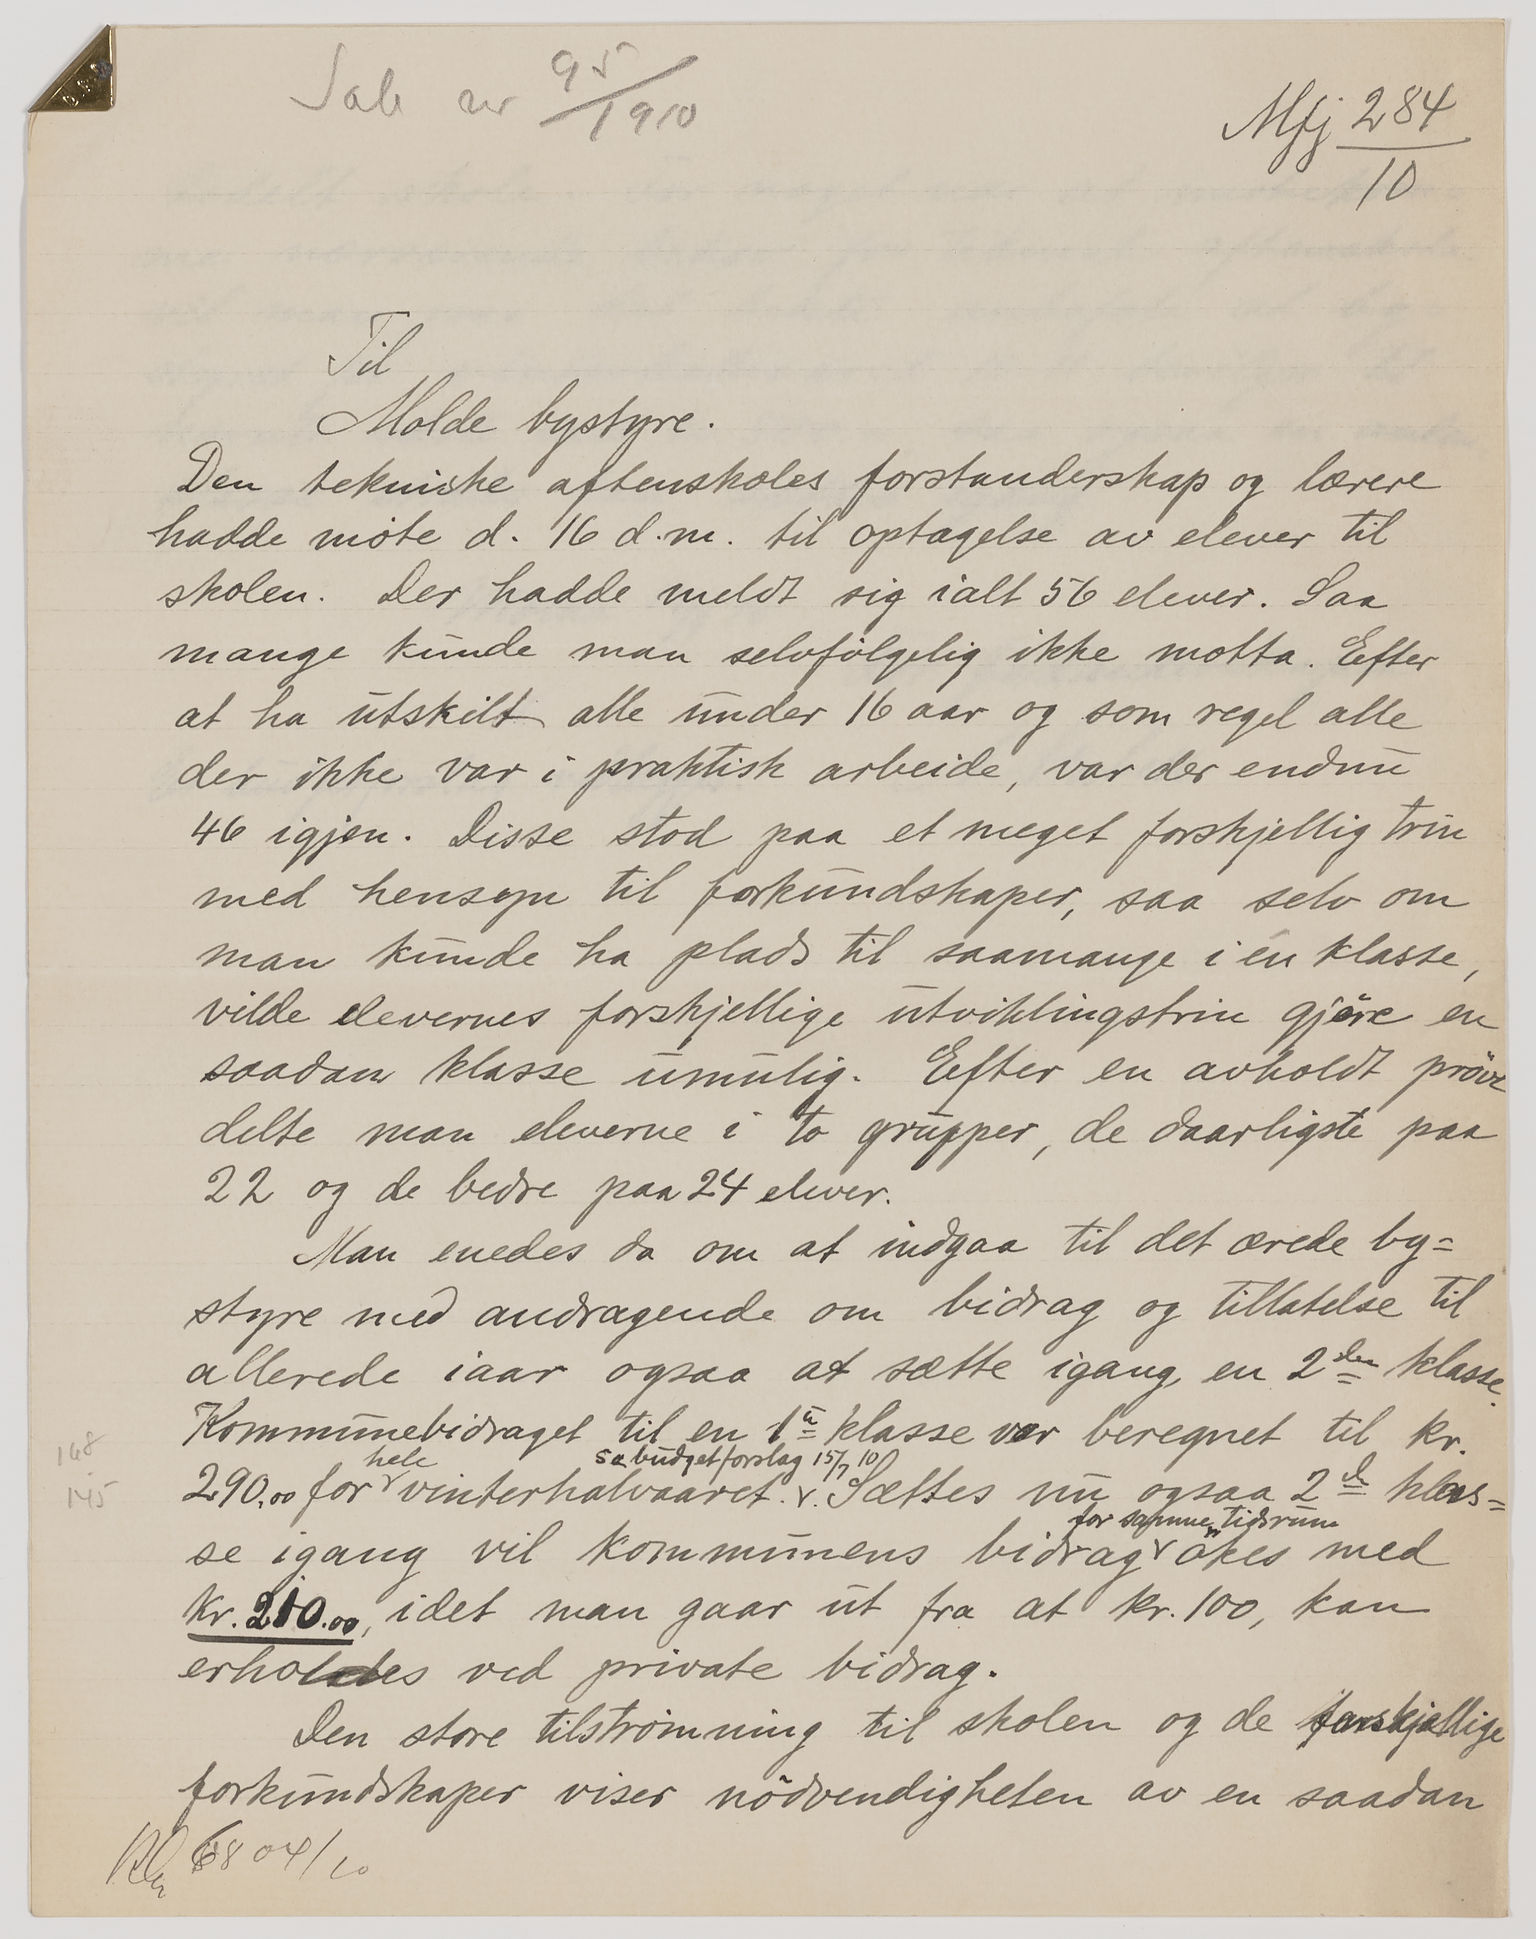 Sak nr 95/1910
Mfj 284/10
Til
Molde bystyre.
Den tekniske aftenskoles forstanderskap og lærere
hadde møte d. 16 d.m. til optagelse av elever til
skolen. Der hadde meldt sig ialt 56 elever. Saa
mange kunde man selvfølgelig ikke motta. Efter
at ha utskilt alle under 16 aar og som regel alle
der ikke var i praktisk arbeide, var der endnu
46 igjen. Disse stod paa et meget forskjellig trin
med hensyn til forkundskaper, saa selv om
man kunde ha plads til saamange i én klasse,
vilde elevernes forskjellige utviklingstrin gjøre en
saadan klasse umulig. Efter en avholdt prøve
delte man eleverne i to grupper, de daarligste paa
22 og de bedre paa 24 elever.
Man enedes da om at indgaa til det ærede by=
styre med andragende om bidrag og tillatelse til
allerede iaar ogsaa at sætte igang en 2den klasse.
Kommunebidraget til en 1ste klasse var beregnet til kr.
hele se budgetforslag 15/7 10
290.00 for vinterhalvaaret. Sættes nu ogsaa 2d klas=
for samme tidsrum
se igang vil kommunens bidrag økes med
kr. 210.00, idet man gaar ut fra at kr. 100, kan
erholdes ved private bidrag.
Den store tilstrømning til skolen og de forskjellige
forkundskaper viser nødvendigheten av en saadan
168
145
6804/10